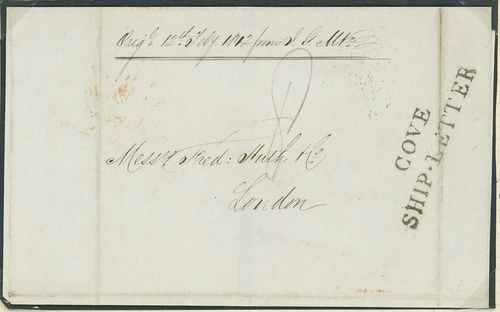 Orig.l 12th Feby. 1842 from J. G.
8
Mess.rs Fred: Huth & Co
London
COVE
SHIP-LETTER